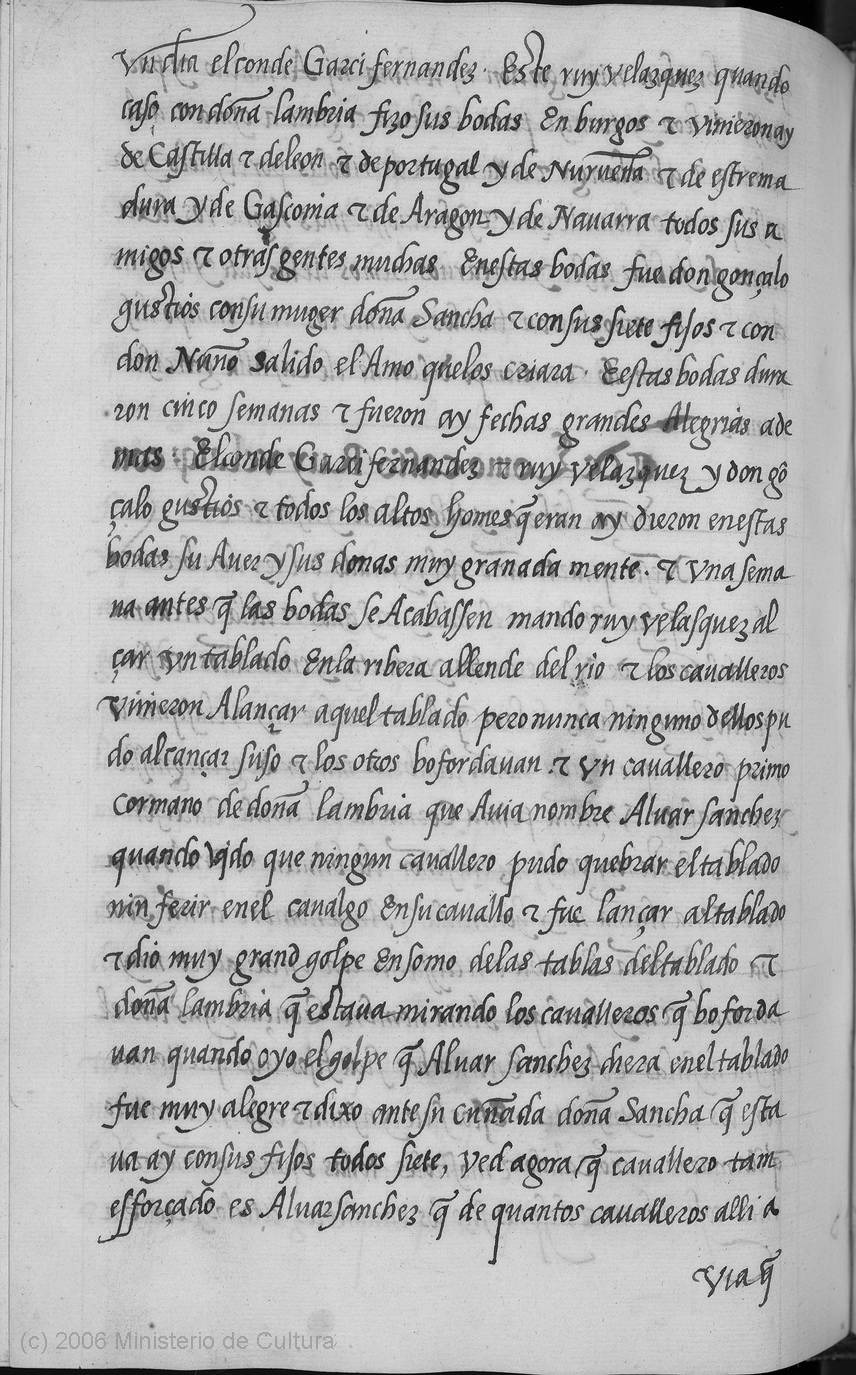 Vn dia el conde Garci fernandez. Este ruy velazquez quando
caso con doña lambria fizo sus bodas En burgos τ vinieron ay
de Castilla τ de leon τ de portugal y de Nurueña τ de estrema
dura y de Gasconia τ de Aragon y de Nauarra todos sus a
migos τ otras gentes muchas Enestas bodas fue don gonçalo
gustios consu muger doña Sancha τ con sus siete fijos τ con
don Nuño Salido el Amo quelos criara. Eestas bodas dura
ron cinco semanas τ fueron ay fechas grandes Alegrias ade
mas. El conde Garci fernandez τ ruy velazquez y don gõ
çalo gustios τ todos los altos homes q̃ eran ay dieron enestas
bodas su Auer y sus donas muy granada mente. τ Vna sema
na antes q̃ las bodas se Acabassen mando ruy velasquez al
çar vn tablado Enla ribera allende del rio τ los caualleros
vinieron Alançar aquel tablado pero nunca ninguno dellos pu
do alcançar suso τ los otros bofordauan. τ Vn cauallero primo
cormano de doña lambria que Auia nombre Aluar sanchez
quando vido que ningun cauallero pudo quebrar el tablado
nin ferir enel caualgo Ensu cauallo τ fue lançar al tablado
τ dio muy grand golpe En somo delas tablas del tablado τ
doña lambria q̃ estaua mirando los caualleros q̃ boforda
uan quando oyo el golpe q̃ Aluar sanchez diera enel tablado
fue muy alegre τ dixo ante su cuñada doña Sancha q̃ esta
ua ay con sus fijos todos siete, Ved agora q̃ cauallero tam
esforçado es Aluar sanchez q̃ de quantos caualleros alli a
Via q̃
(c) 2006 Ministerio de Cultura